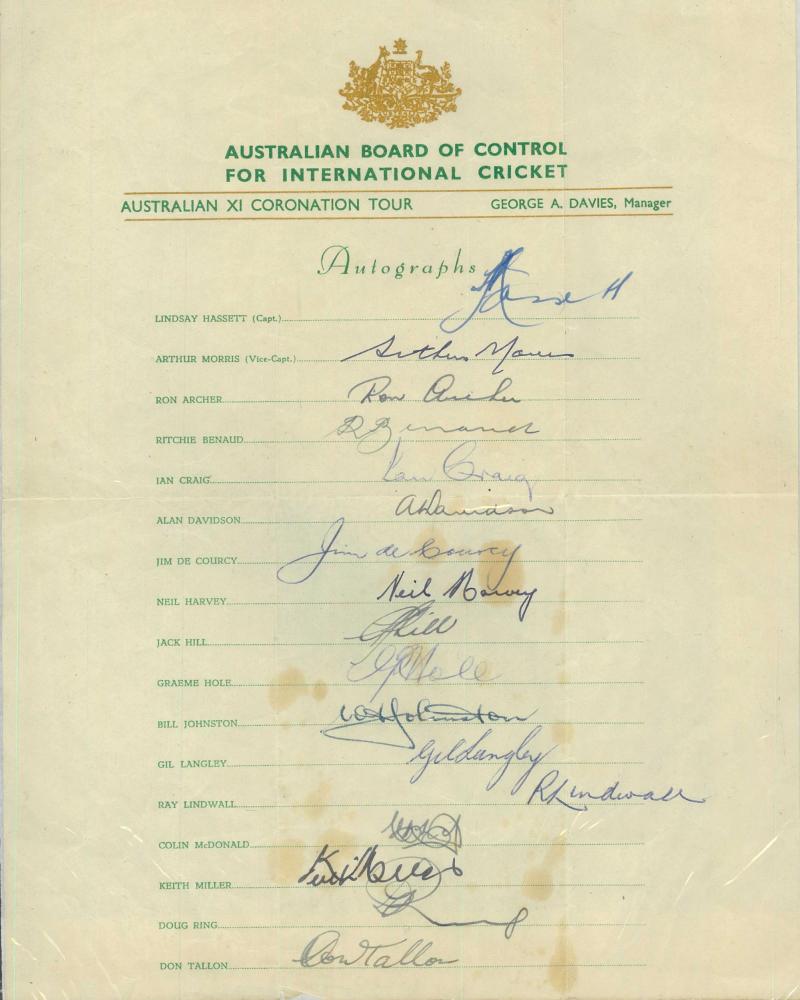 AUSTRALIAN BOARD OF CONTROL
FOR INTERNATIONAL CRICKET
AUSTRALIAN XI CORONATION TOUR GEORGE A. DAVIES, Manager
Autographs
LINDSAY HASSETT (Capt.) Hassett
ARTHUR MORRIS (Vice-Capt.) Arthur Morris
RON ARCHER Ron Archer
RITCHIE BENAUD R Benaud
IAN CRAIG Ian Craig
ALAN DAVIDSON AKDavidson
JIM DE COURCY Jim de Courcy
NEIL HARVEY Neil Harvey
JACK HILL JHill
GRAEME HOLE GHole
BILL JOHNSTON WAJohnston
GIL LANGLEY Gil Langley
RAY LINDWALL RLindwall
COLIN McDONALD
KEITH MILLER Keith Miller
DOUG RING D Ring
DON TALLON Don Tallon